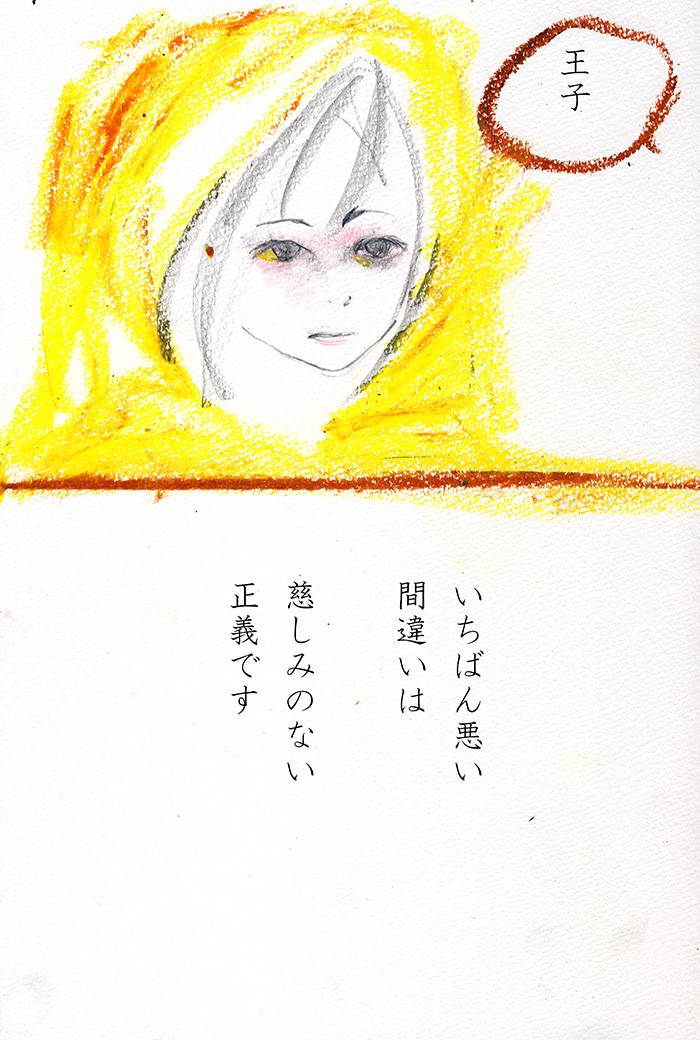 王子
いちばん悪い
間違いは
慈しみのない
正義です